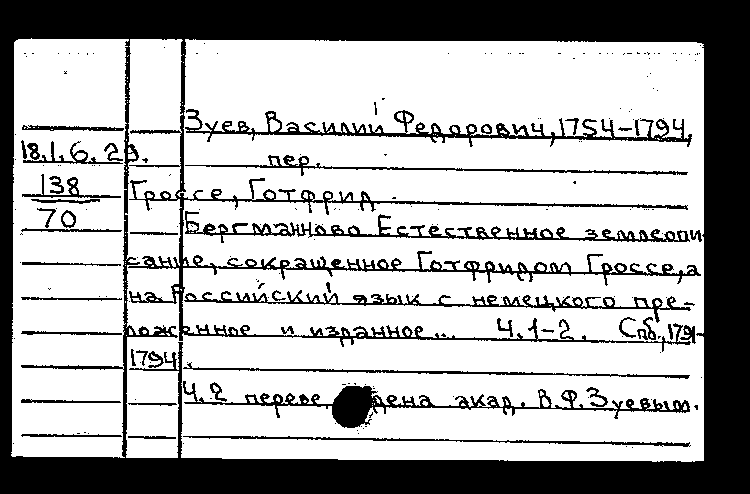 Зуев, Василий Федорович, 1754-1794,
18.1.6.29. пер.
138 Гроссе, Готфрид.
70 Бергманново Естественное землеопи
сание, сокращенное Готфридом Гроссе, а
на Российский язык с немецкого пре-
ложенное и изданное... Ч.1-2. Спб, 1791-
1794.
Ч.2 переведена акад. В.Ф.Зуевым.